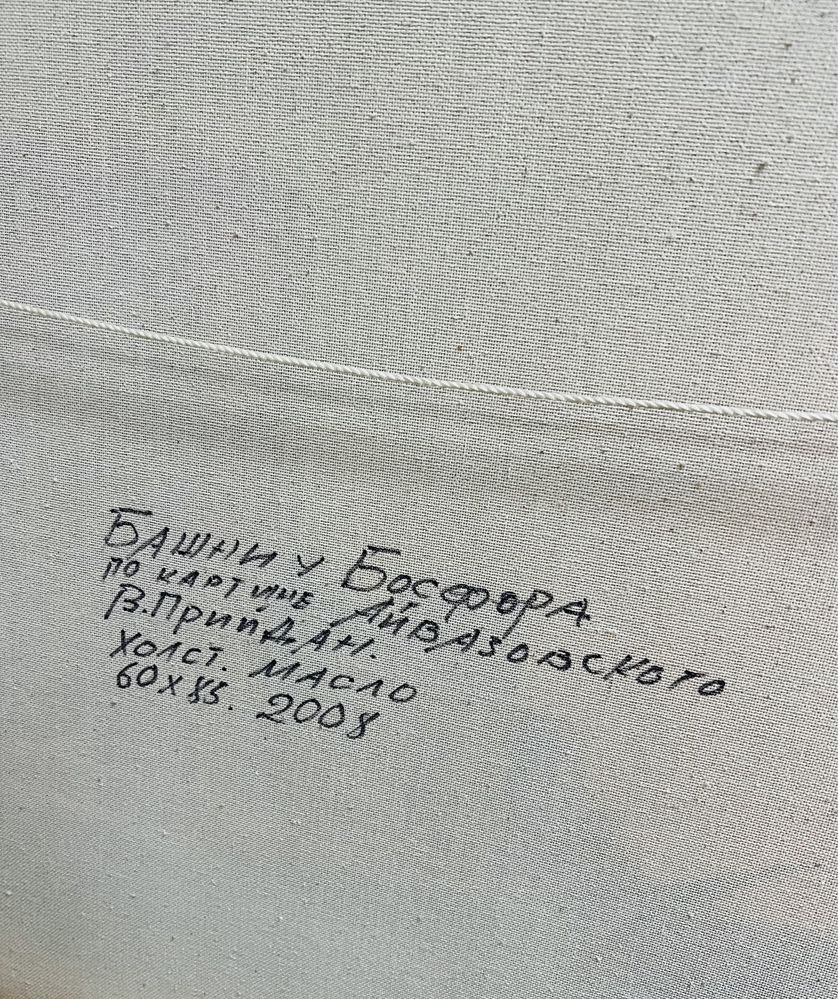 Башни у Босфора
по картине Айвазовского
В.Прийдан.
Холст. Масло
60х85. 2008